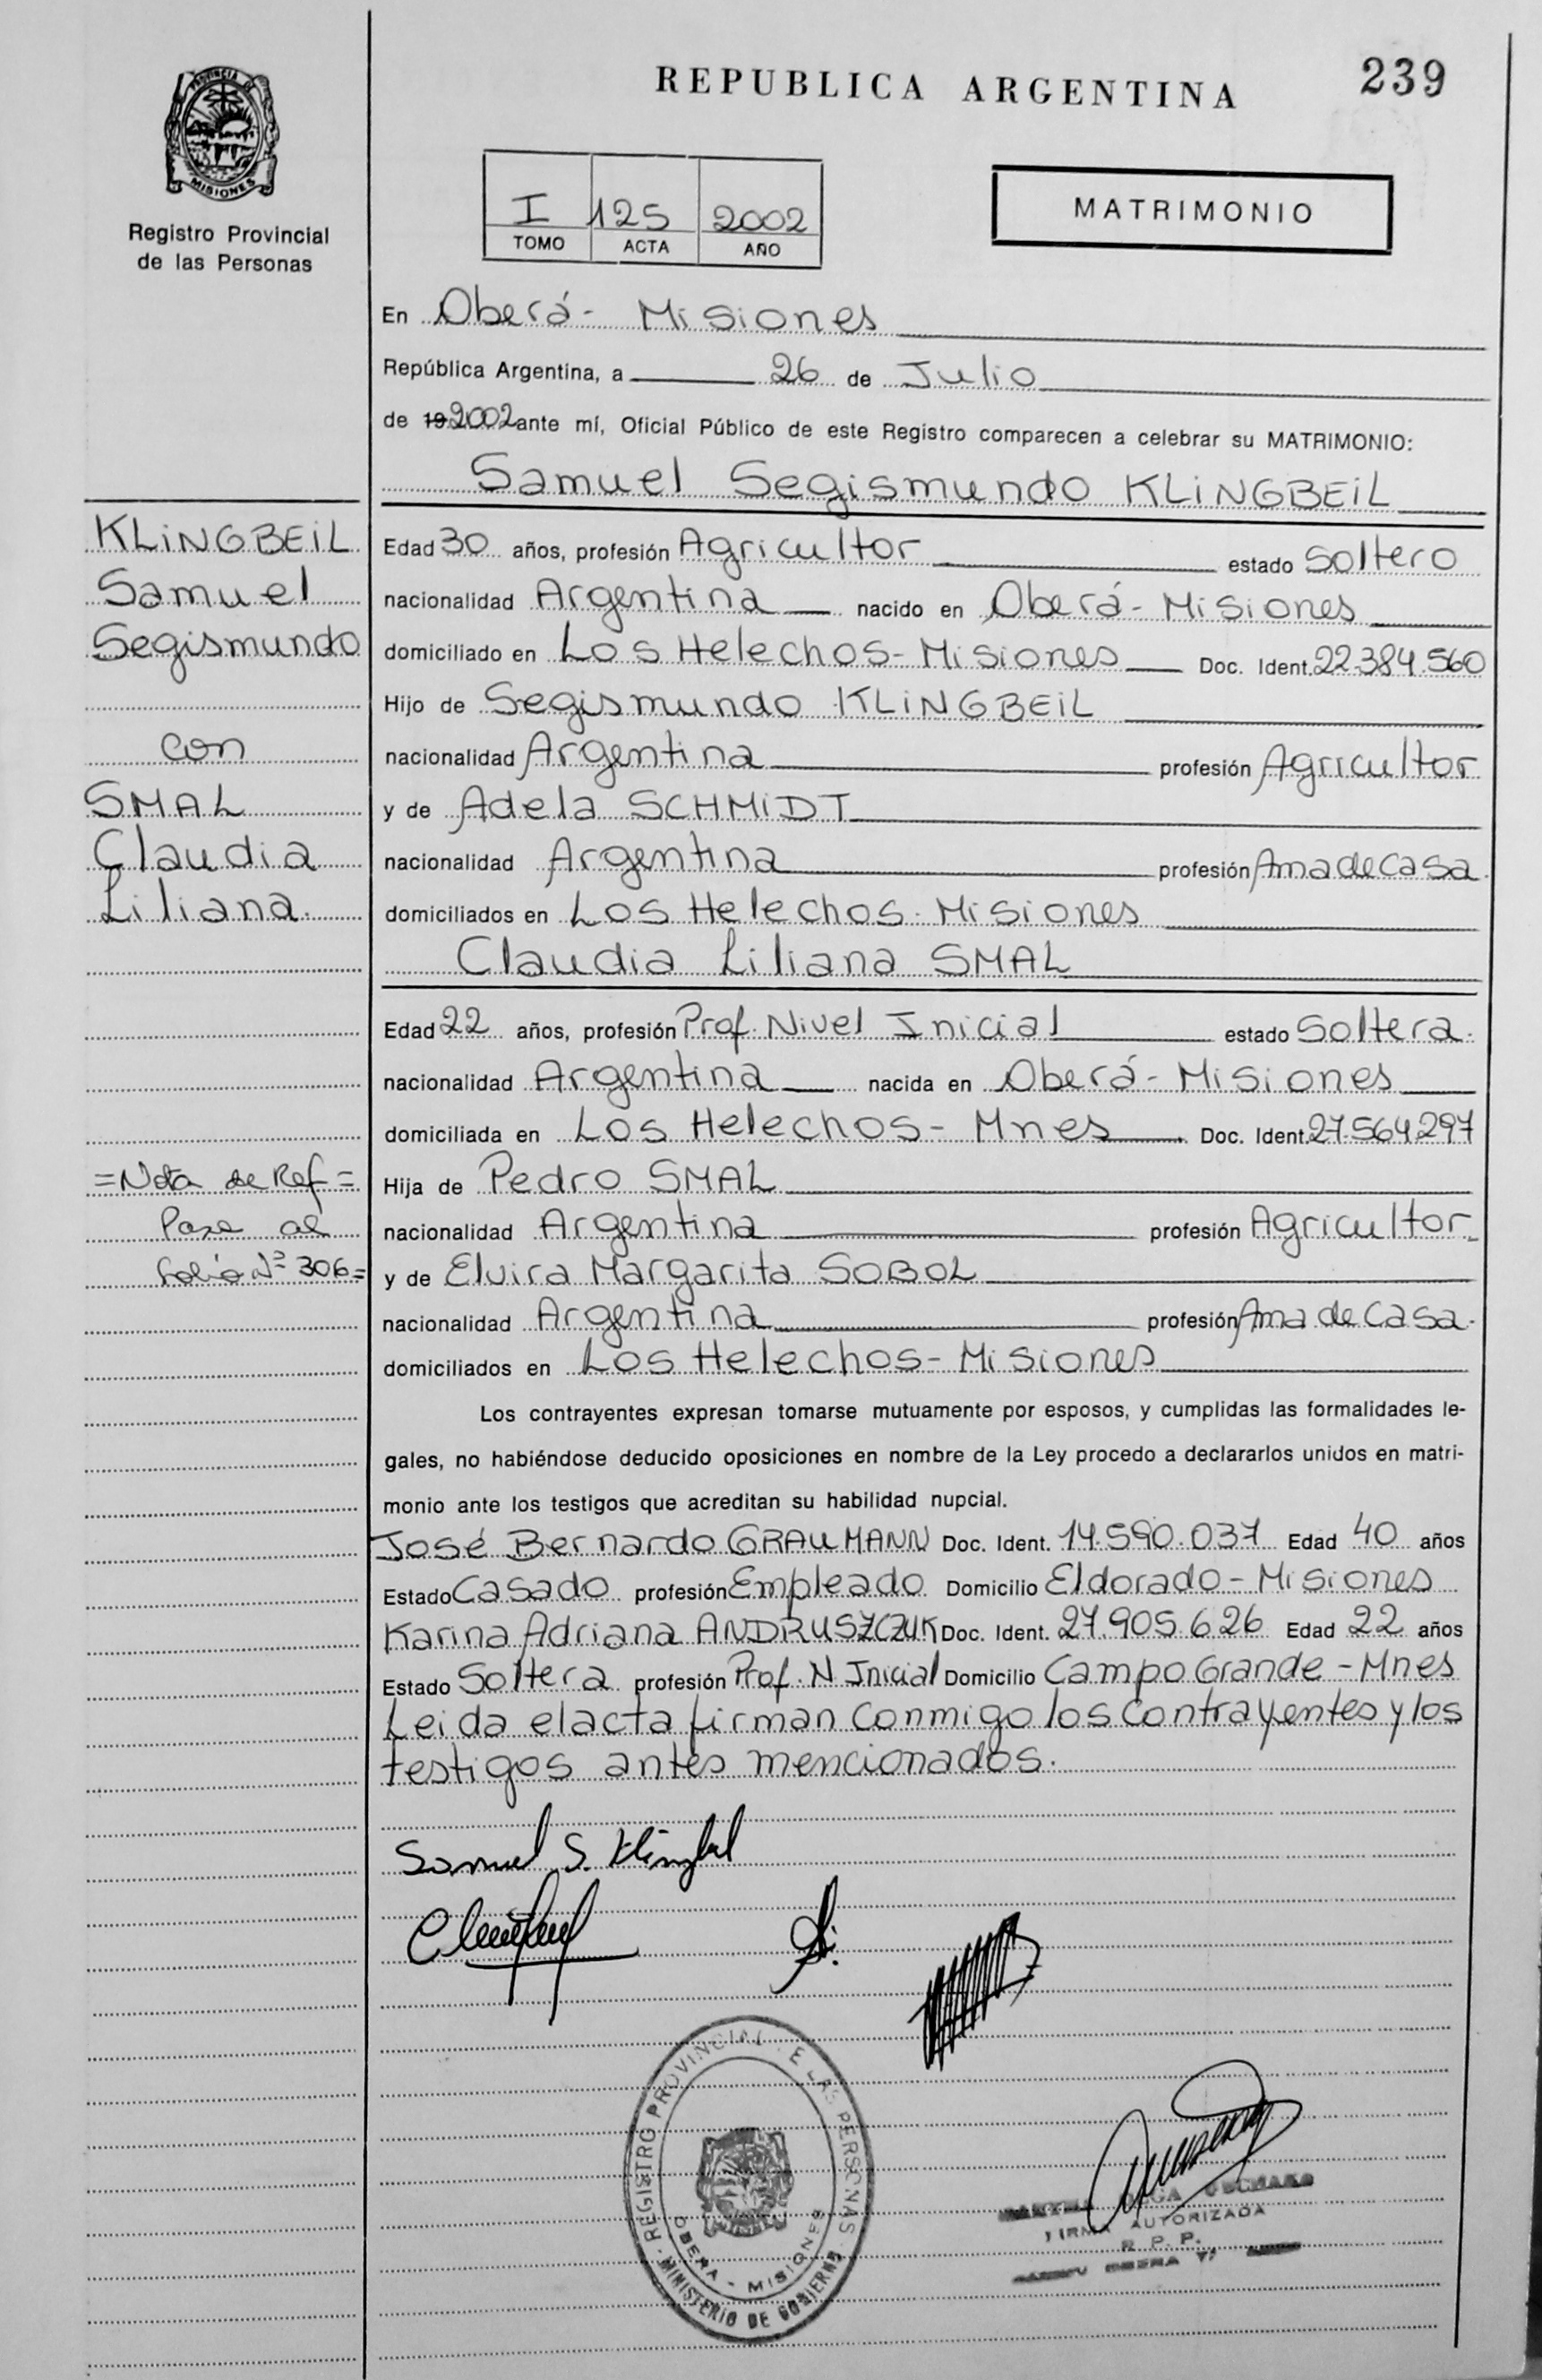 REPUBLICA ARGENTINA
239
PROVINCIA DE
MISIONES
Registro Provincial
de las Personas
I 125 2002
TOMO ACTA AÑO
MATRIMONIO
En Oberá - Misiones
República Argentina, a 26 de Julio
de 19 2002 ante mí, Oficial Público de este Registro comparecen a celebrar su MATRIMONIO:
Samuel Segismundo KLiNGBEiL
Edad 30 años, profesión Agricultor estado Soltero
nacionalidad Argentina nacido en Oberá - Misiones
domiciliado en Los Helechos - Misiones Doc. Ident. 22.384.560
Hijo de Segismundo KLiNGBEiL
nacionalidad Argentina profesión Agricultor
y de Adela SCHMiDT
nacionalidad Argentina profesión Ama de casa
domiciliados en Los Helechos - Misiones
Claudia Liliana SMAL
Edad 22 años, profesión Prof. Nivel Inicial estado Soltera.
nacionalidad Argentina nacida en Oberá - Misiones
domiciliada en Los Helechos - Mnes Doc. Ident. 27.564.297
Hija de Pedro SMAL
nacionalidad Argentina profesión Agricultor
y de Elvira Margarita SOBOL
nacionalidad Argentina profesión Ama de Casa.
domiciliados en Los Helechos - Misiones
Los contrayentes expresan tomarse mutuamente por esposos, y cumplidas las formalidades le-
gales, no habiéndose deducido oposiciones en nombre de la Ley procedo a declararlos unidos en matri-
monio ante los testigos que acreditan su habilidad nupcial.
José Bernardo GRAUMANN Doc. Ident. 14.590.037 Edad 40 años
Estado Casado profesión Empleado Domicilio Eldorado - Misiones
Karina Adriana ANDRUSZCZUK Doc. Ident. 27.905.626 Edad 22 años
Estado Soltera profesión Prof. N. Inicial Domicilio Campo Grande - Mnes
Leida el acta firman conmigo los contrayentes y los
testigos antes mencionados.
KLiNGBEiL
Samuel
Segismundo
con
SMAL
Claudia
Liliana.
= Nota de Ref =
Pasa al
folio Nº 306 =
Samuel S. Klingbeil
REGISTRO PROVINCIAL DE LAS PERSONAS
OBERA - MISIONES
MINISTERIO DE GOBIERNO
FIRMA AUTORIZADA
R. P. P.
OBERA